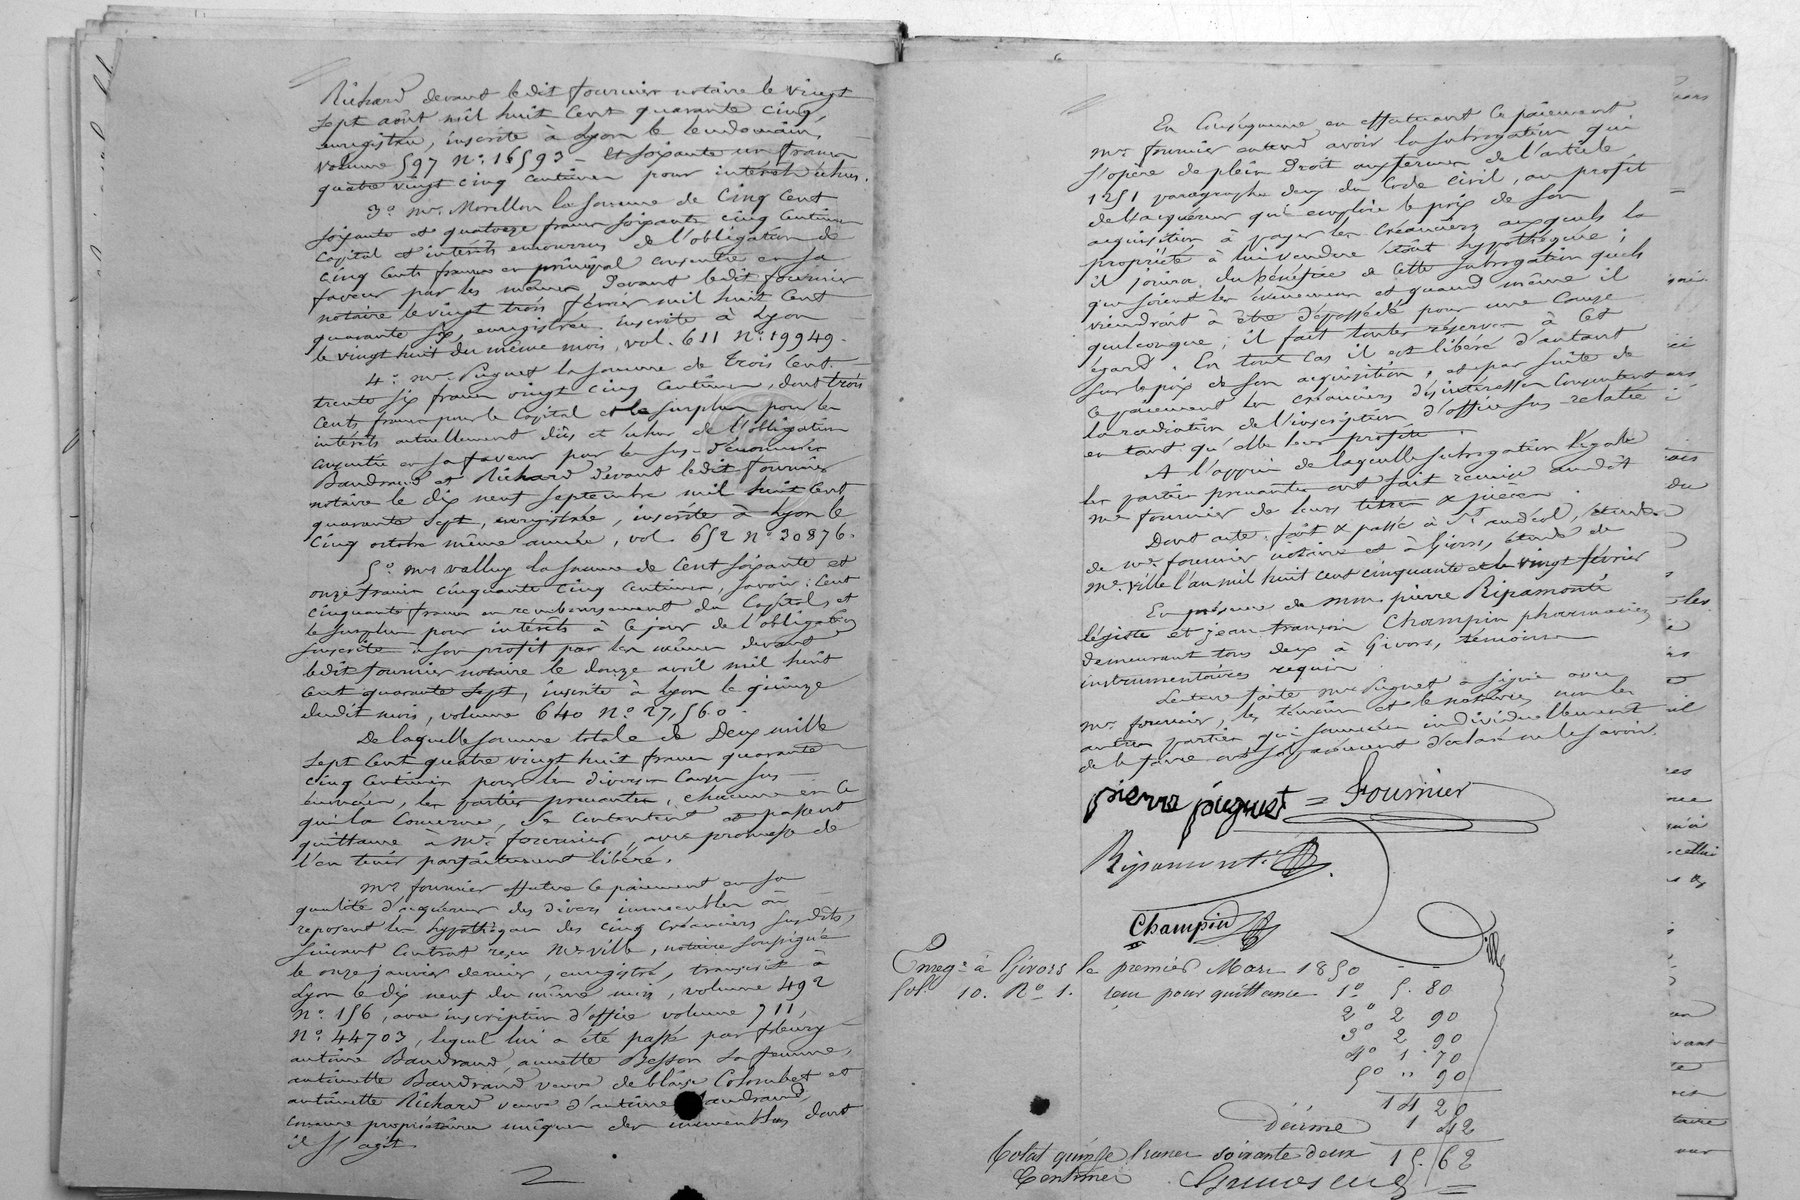 Richard devant ledit fournier notaire le vingt
sept août mil huit cent quarante cinq,
enregistrée, inscrite à Lyon le lendemain,
volume 597 N°. 16593 - et soixante un francs
quatre vingt cinq centimes pour intérêts échus.
3°. Mr. Morellon la somme de Cinq cent
soixante et quatorze francs soixante cinq centimes
capital et intérêts encourrus de l'obligation de
cinq cents francs en principal consentie en sa
faveur par les mêmes devant ledit fournier
notaire le vingt trois février mil huit cent
quarante six, enregistrée inscrite à Lyon
le vingt huit du même mois, vol. 611 N°. 19949.
4°. Mr. Puguet la somme de trois cent
trente six francs vingt cinq centimes, dont trois
cents francs pour le capital et le surplus pour les
intérêts actuellement dûs et échus de l'obligation
consentie en sa faveur par les sus-dénommés
Baudrand et Richard devant ledit fournier
notaire le dix neuf septembre mil huit cent
quarante sept, enregistrée, inscrite à Lyon le
cinq octobre même année, vol. 652 N° 30876.
5° Mr Valluy la somme de cent soixante et
onze francs cinquante cinq centimes, savoir: cent
cinquante francs en remboursement du capital, et
le surplus pour intérêts à ce jour de l'obligation
souscrite à son profit par les mêmes devant
ledit fournier notaire le douze avril mil huit
cent quarante sept, inscrite à Lyon le quinze
dudit mois, volume 640 N°. 27,560.
De laquelle somme totale de Deux mille
sept cent quatre vingt huit francs quarante
cinq centimes pour les diverses causes sus-
énoncées, les parties prenantes, chacune en ce
qui la concerne, se contentent et passent
quittance à Mr. fournier, avec promesse de
l'en tenir parfaitement libéré.
Mr fournier effectue le paiement en sa
qualité d'acquéreur des divers immeubles où
reposent les hypothèques des cinq créanciers susdits,
suivant contrat reçu Me Ville, notaire soussigné
le onze janvier dernier, enregistré, transcrit à
Lyon le dix neuf du même mois, volume 492
N°. 156, avec inscription d'office volume 711,
N°. 44703, lequel lui a été passé par fleury
antoine Baudrand, annette Besson sa femme,
antoinette Baudrand veuve de blaise Colombet et
antoinette Richard veuve d'antoine Baudrand,
comme propriétaires uniques des immeubles dont
il s'agit
En Conséquence en effectuant ce paiement
Mr. fournier entend avoir la subrogation qui
s'opère de plein droit aux termes de l'article
1251 paragraphe deux du Code Civil, au profit
de l'acquéreur qui emploie le prix de son
acquisition à payer les créanciers auxquels la
propriété à lui vendue était hypothéquée;
il jouira du bénéfice de cette subrogation quels
que soient les évènemens et quand même il
viendrait à être dépossédé pour une cause
quelconque; il fait toutes réserves à cet
égard. En tout cas il est libéré d'autant
sur le prix de son acquisition, et par suite de
ce paiement les créanciers désintéressés consentent
la radiation de l'inscription d'office sus-relatée
en tant qu'elle leur profite.
A l'appui de laquelle subrogation légale
les parties prenantes ont fait remise audit
Mr fournier de leurs titres & pièces.
Dont acte fait & passé à St andéol, étude
de Me. fournier notaire et à Givors, étude de
Me. Ville l'an mil huit cent cinquante et le vingt février
En présence de MM. pierre Ripamonti
légiste et jean françois Champin pharmacien
demeurant tous deux à Givors, témoins
instrumentaires requis
Lecture faite Mr Puguet a signé avec
Mr. fournier, les témoins et le notaire, non les
autres parties qui sommées individuellement
de le faire ont séparément déclaré ne le savoir.
pierre puguet = Fournier
Ripamonti
Champin
Ville
Enregé. à Givors le premier Mars 1850
fol. 10. Ro. 1. reçu pour quittance 1° 5. 80
2° 2 90
3° 2 90
4° 1. 70
5° " 90
14 20
Décime 1 42
Total quinze francs soixante deux 15. 62
Centimes
2